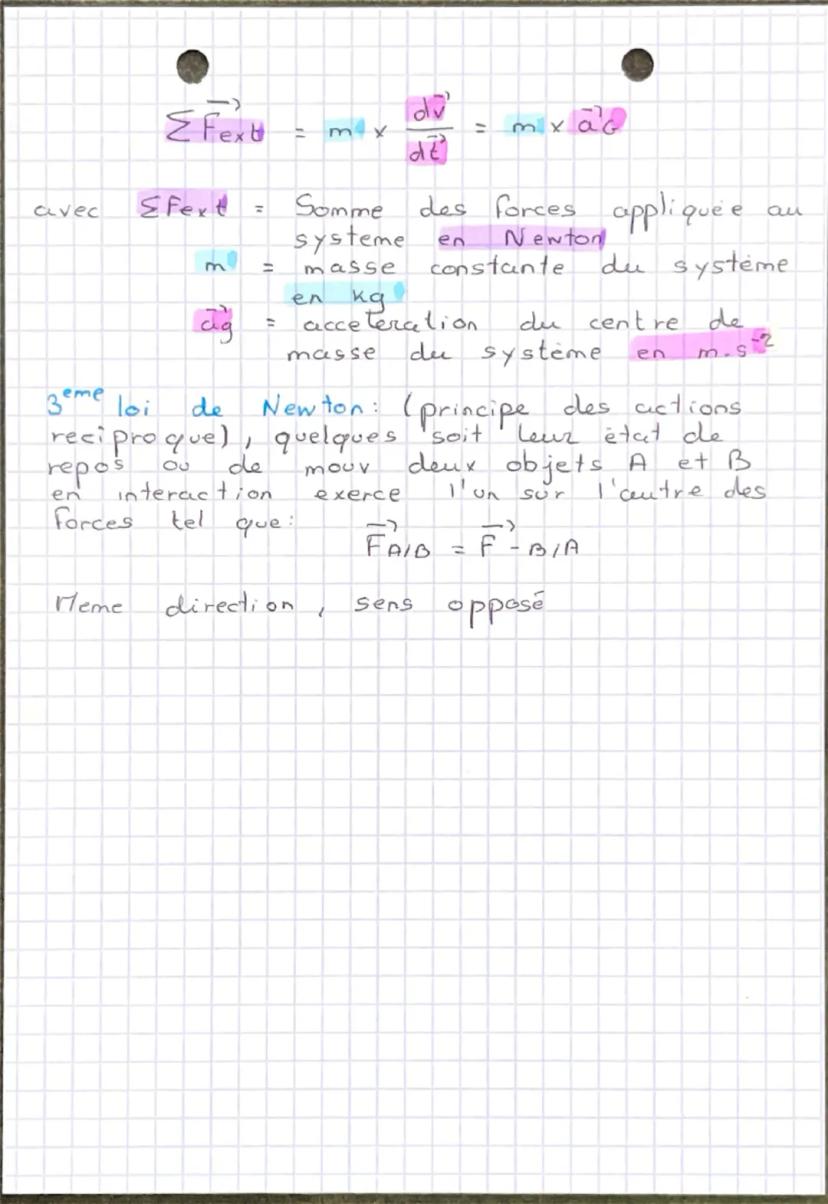 ΣF⃗ext = m × dv⃗/dt⃗ = m × a⃗G
avec ΣFext = Somme des forces appliquée au
systeme en Newton
m = masse constante du système
en kg
a⃗g = acceleration du centre de
masse du système en m.s⁻²
3eme loi de Newton: (principe des actions
reciproque), quelques soit leur état de
repos ou de mouv deux objets A et B
en interaction exerce l'un sur l'autre des
forces tel que:
F⃗A/B = F⃗ - B/A
Meme direction, sens opposé